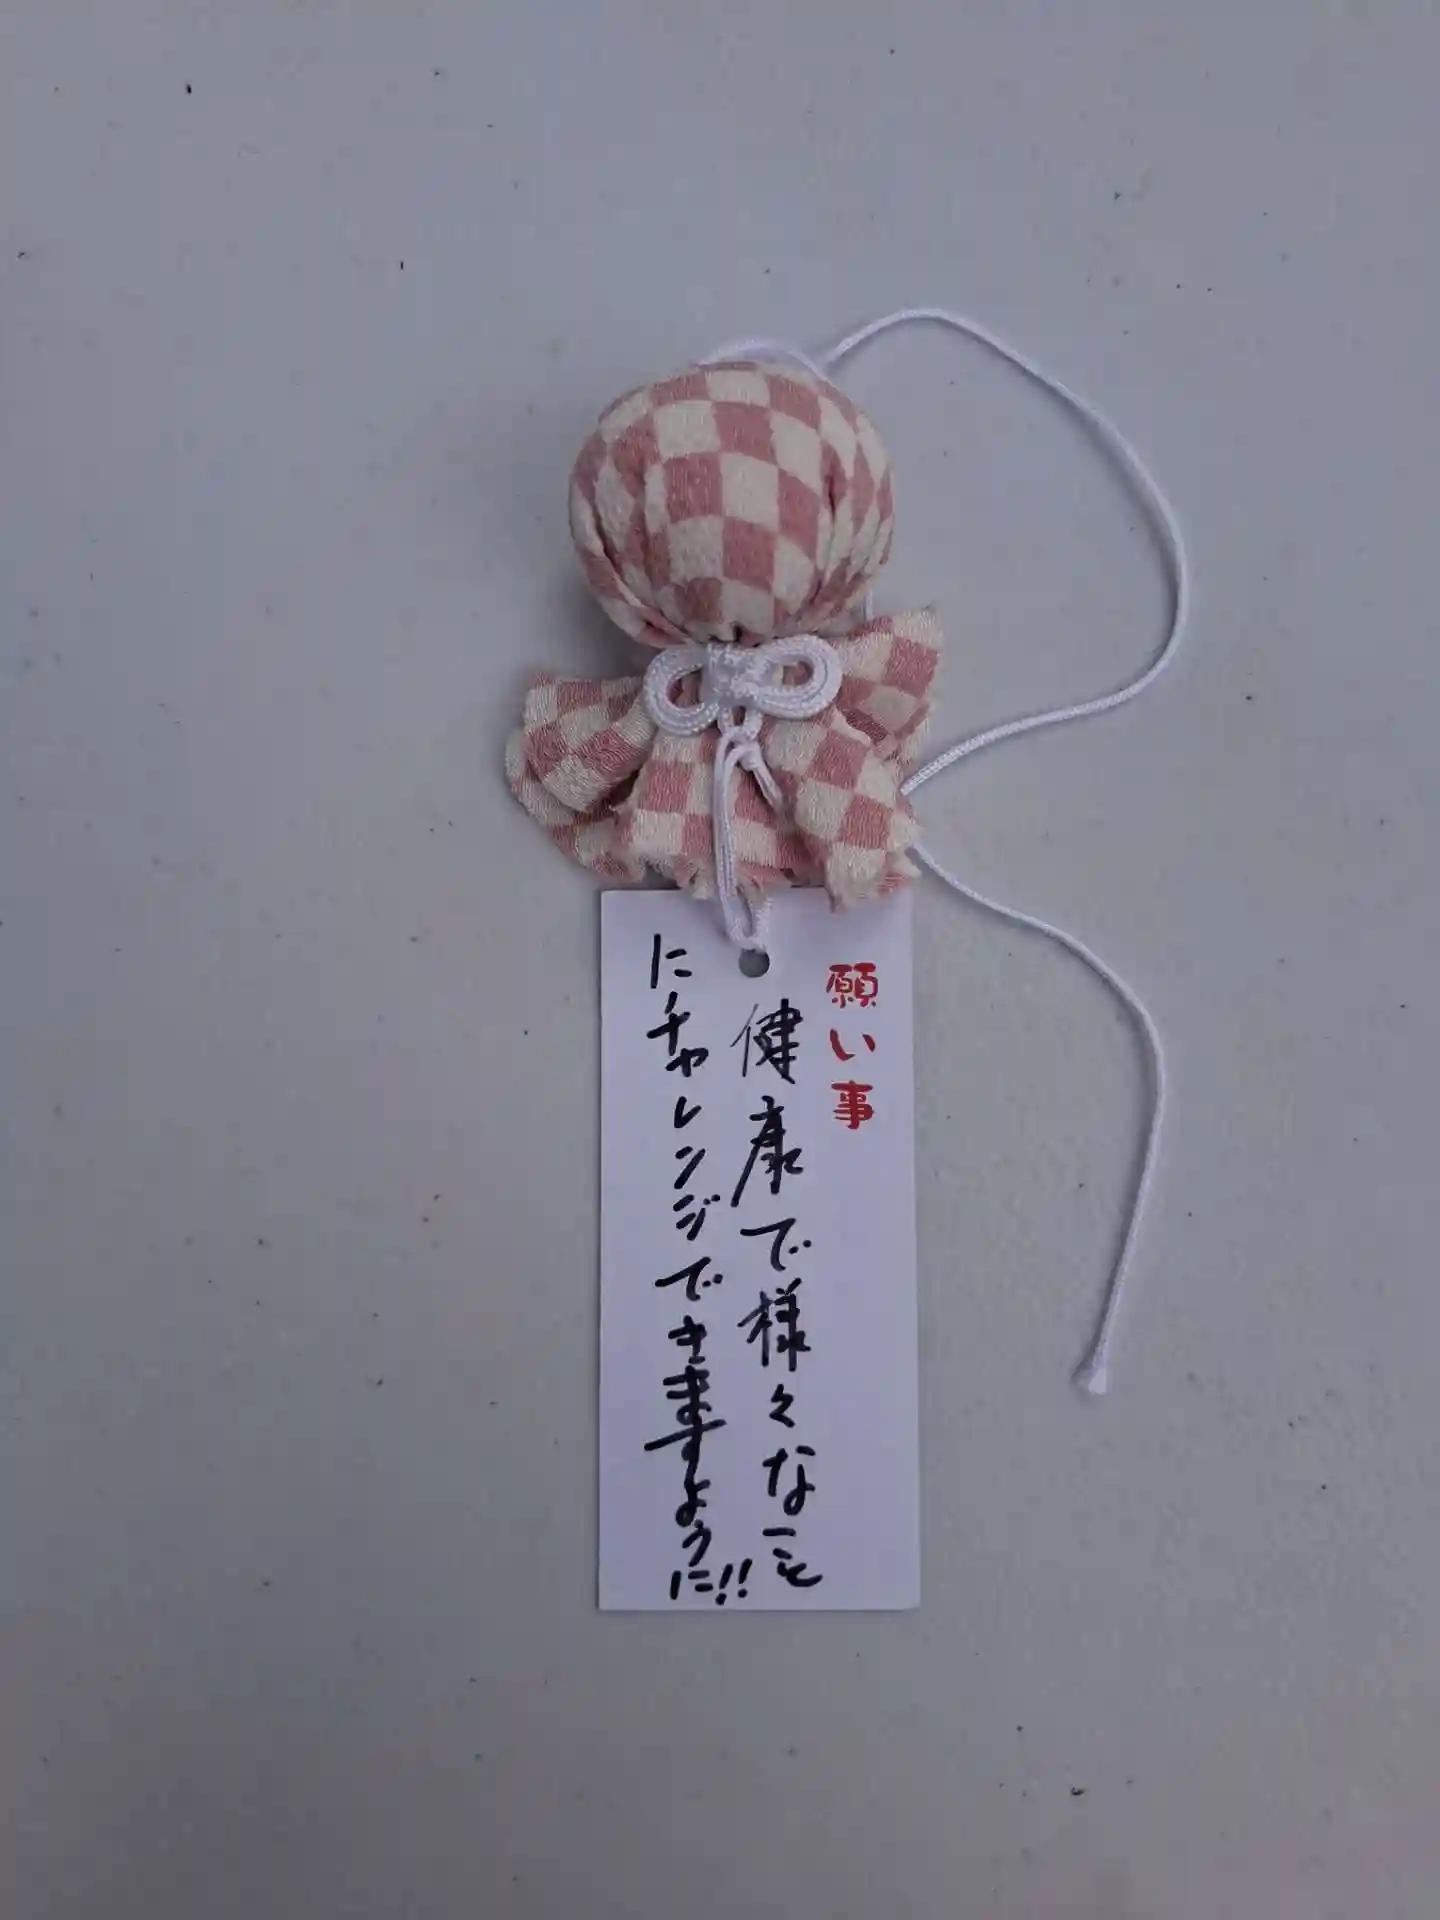 願い事
健康で様々なこと
にチャレンジできますように!!